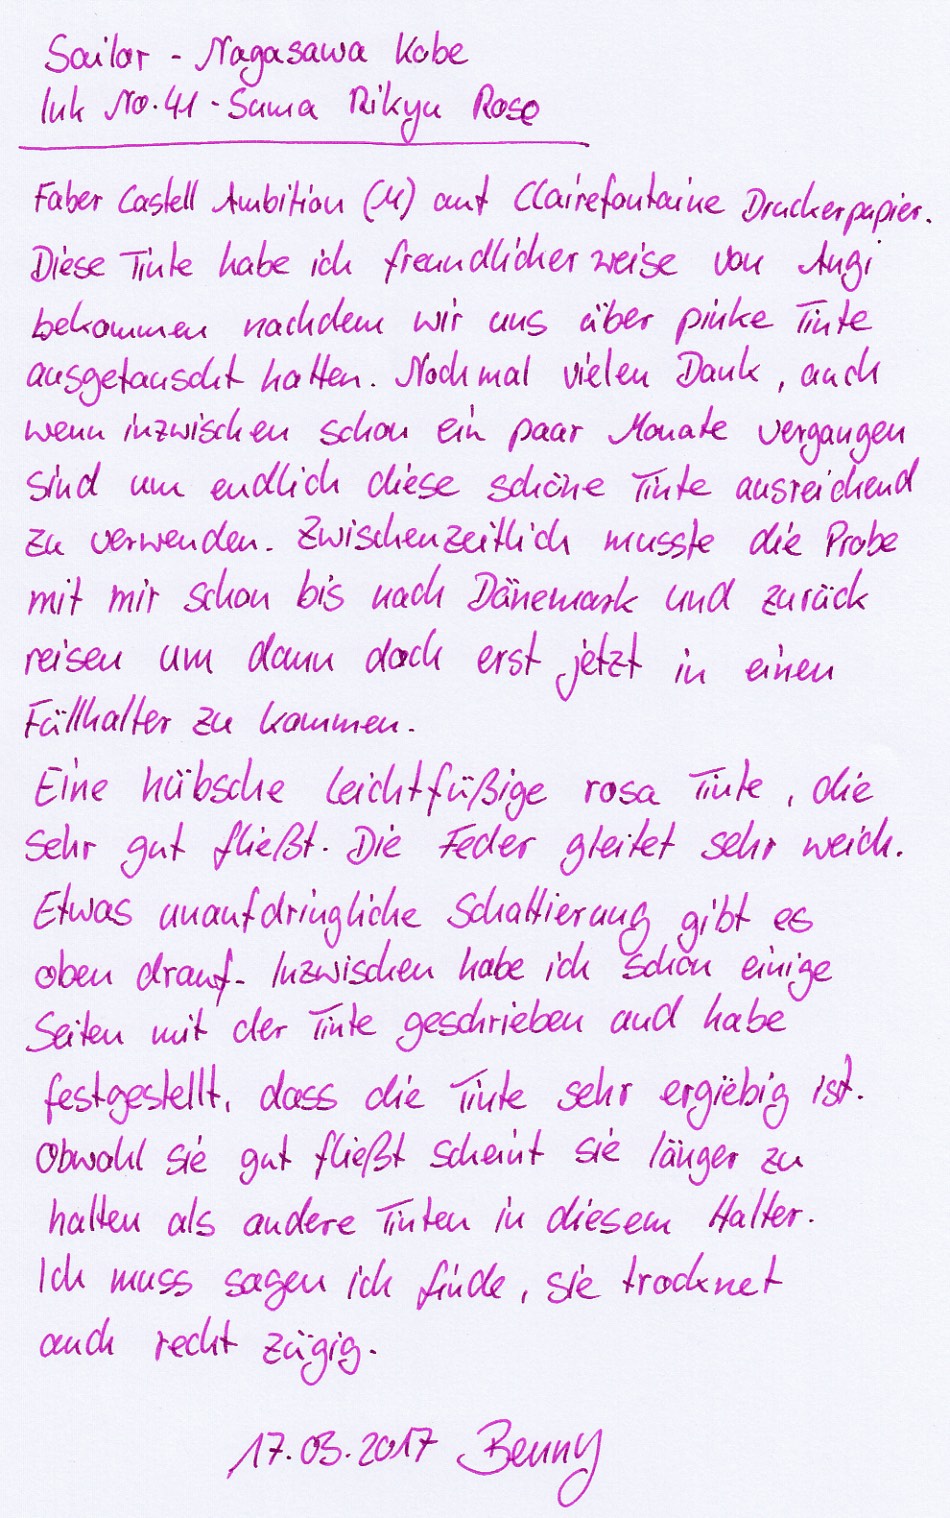 Sailor - Nagasawa Kobe
Ink No. 41 - Suma Rikyu Rose
Faber Castell Ambition (M) auf Clairefontaine Druckerpapier.
Diese Tinte habe ich freundlicherweise von Angi
bekommen nachdem wir uns über pinke Tinte
ausgetauscht hatten. Nochmal vielen Dank, auch
wenn inzwischen schon ein paar Monate vergangen
sind um endlich diese schöne Tinte ausreichend
zu verwenden. Zwischenzeitlich musste die Probe
mit mir schon bis nach Dänemark und zurück
reisen um dann doch erst jetzt in einen
Füllhalter zu kommen.
Eine hübsche leichtfüßige rosa Tinte, die
sehr gut fließt. Die Feder gleitet sehr weich.
Etwas unaufdringliche Schattierung gibt es
oben drauf. Inzwischen habe ich schon einige
Seiten mit der Tinte geschrieben und habe
festgestellt, dass die Tinte sehr ergiebig ist.
Obwohl sie gut fließt scheint sie länger zu
halten als andere Tinten in diesem Halter.
Ich muss sagen ich finde, sie trocknet
auch recht zügig.
17.03.2017 Benny